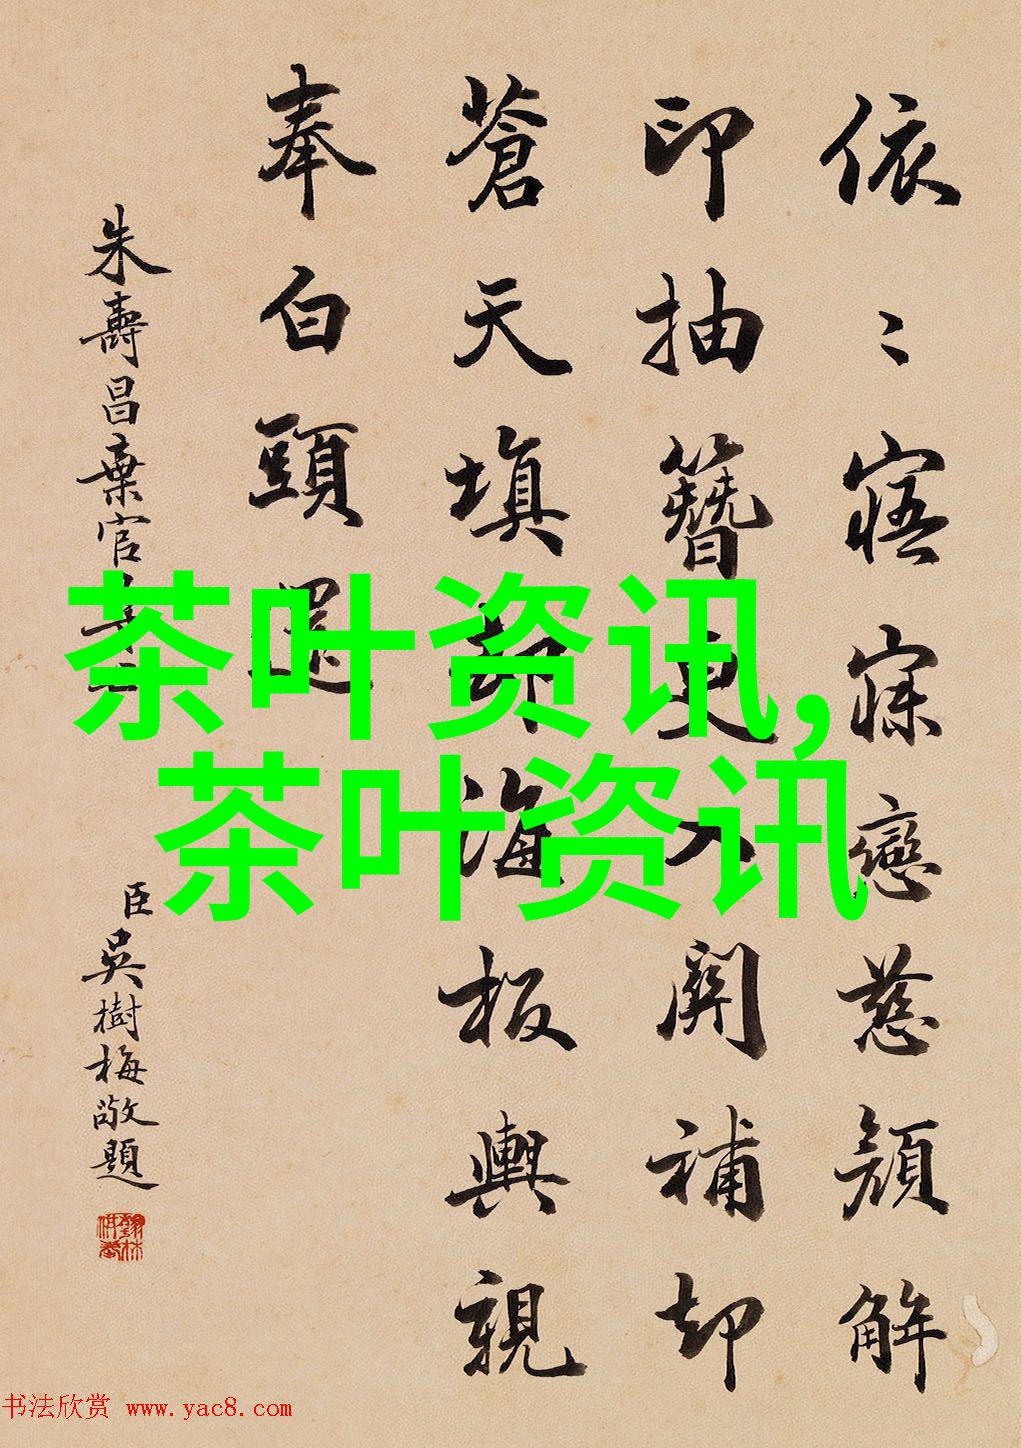 依〻寤寐戀慈顔解
印抽簪更入關補却
蒼天填海板輿親
奉白頭還
朱壽昌棄官
臣吳樹梅敬題
茶叶资讯,
茶叶资讯
书法欣赏 www.yac8.com